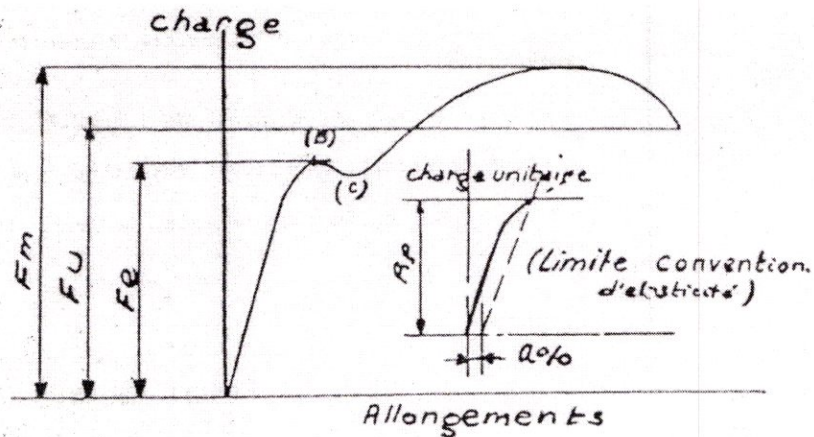 charge
(B)
(C)
charge unitaire
Fm
FU
Fe
Rp
(Limite convention.
d'elasticité)
a%
Allongements